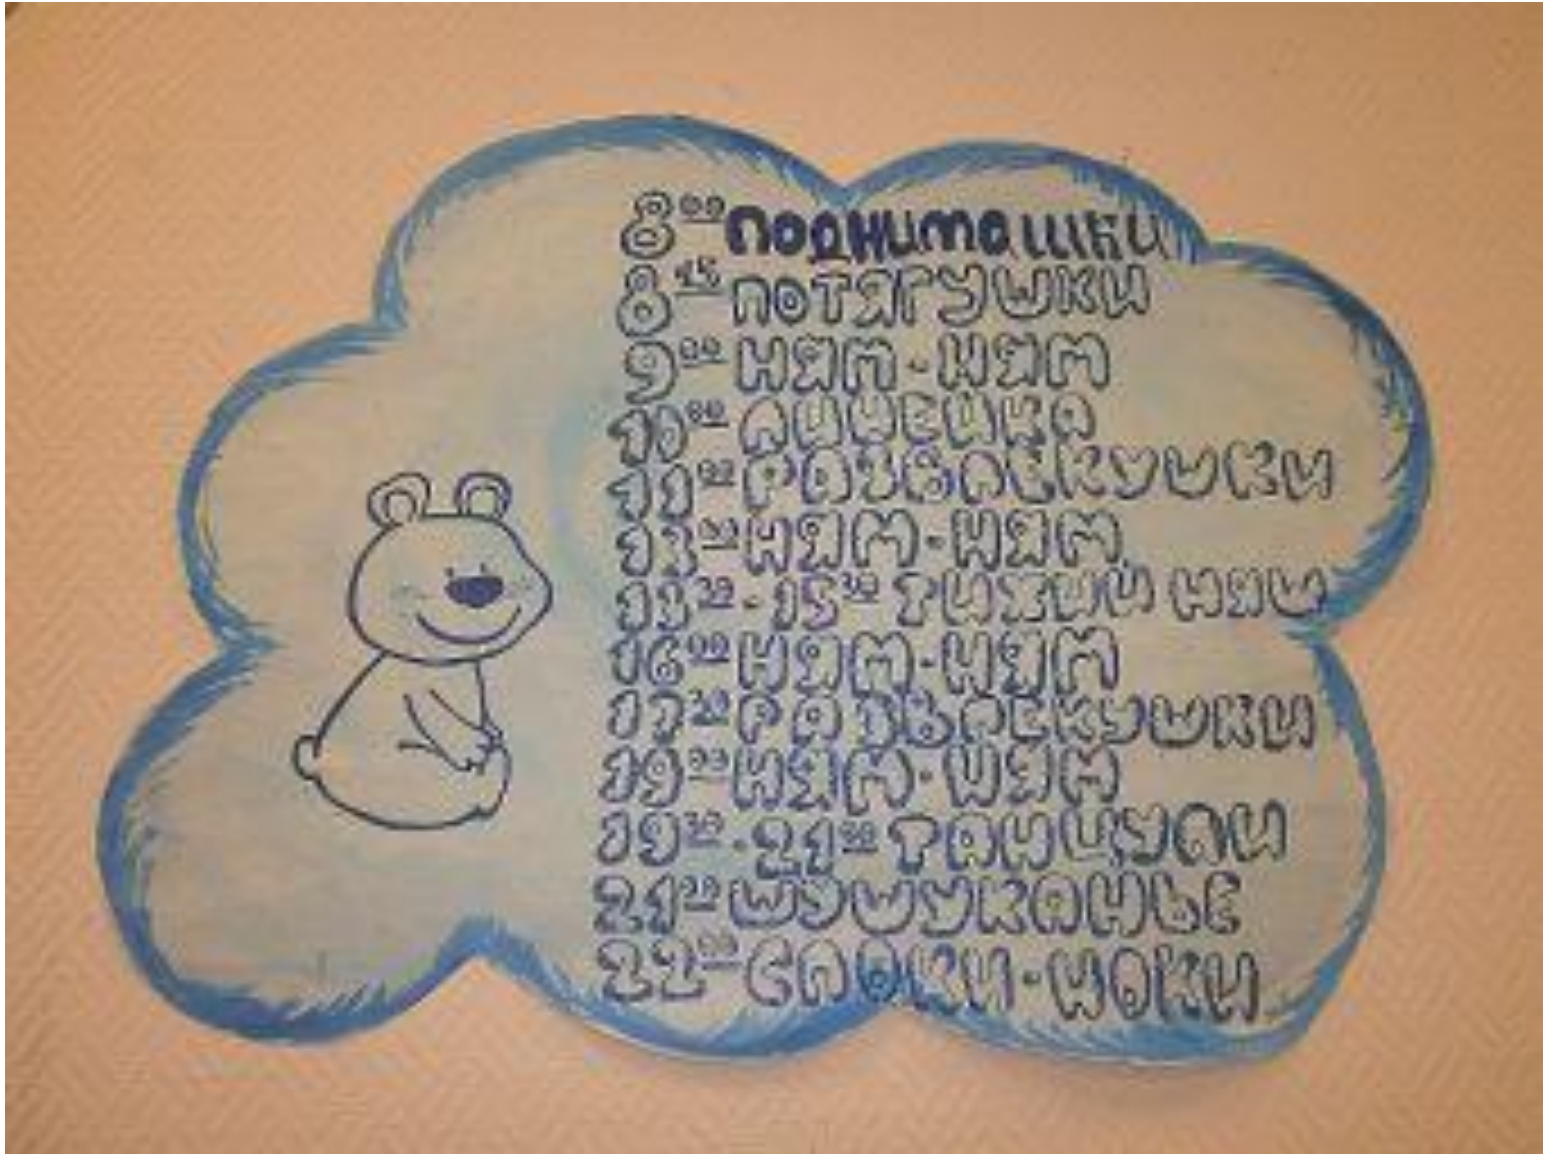 8⁰⁰ ПОДНИМАШКИ
8⁴⁵ ПОТЯГУШКИ
9⁰⁰ НЯМ-НЯМ
10⁰⁰ ЛИНЕЙКА
11⁰⁰ РАЗВЛЕКУШКИ
НЯМ-НЯМ
15³⁰ ТИХИЙ НЯШ
16⁰⁰ НЯМ-НЯМ
РАЗВЛЕКУШКИ
19⁰⁰ НЯМ-НЯМ
19³⁰-21⁰⁰ ТАНЦУЛИ
21³⁰ ШУШУКАНЬЕ
22⁰⁰ СПОКИ-НОКИ